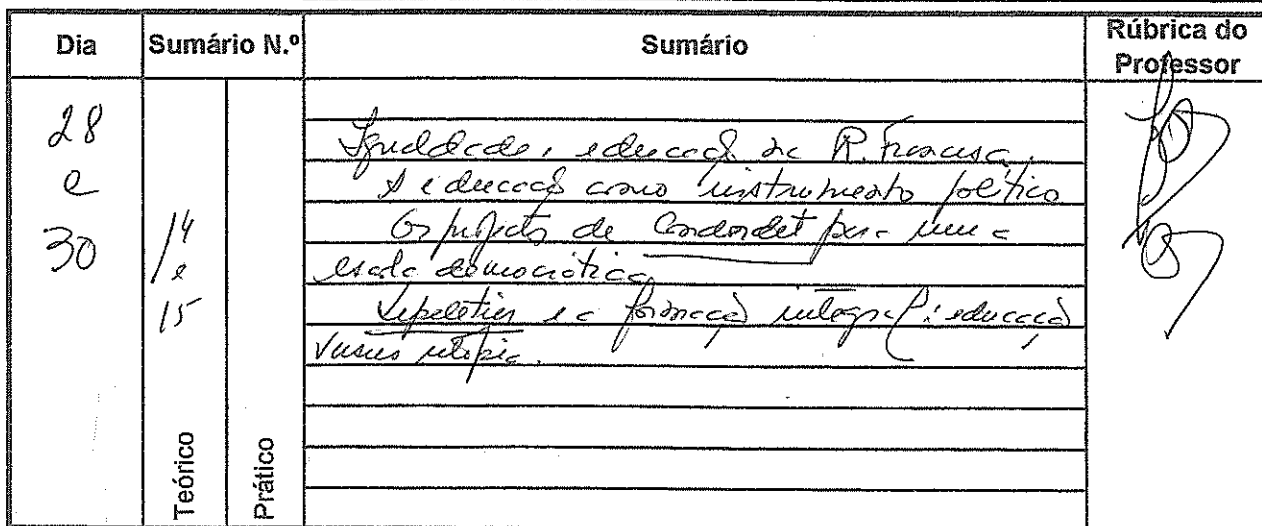 Dia Sumário N.º Sumário Rúbrica do Professor
28
e
30
14
e
15
Igualdade e educação na R. Francesa.
A educação como instrumento político
Os projectos de Condorcet para uma
escola democrática
Lepeletier e a formação integral: educação
versus utopia.
Teórico
Prático